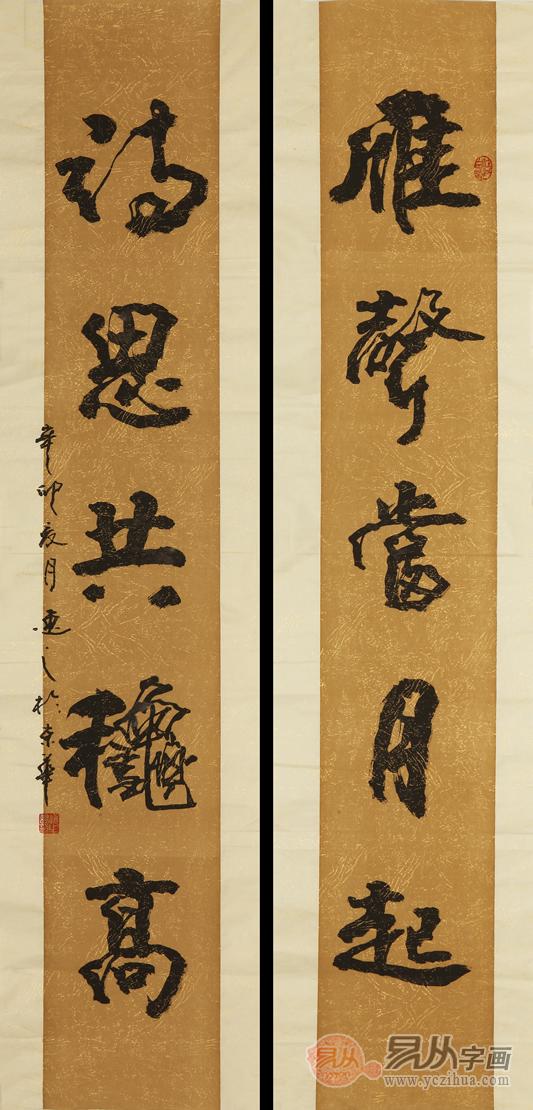 雁聲當月起
詩思共龝高
辛卯夏月之於京華
易从字画
www.yczihua.com